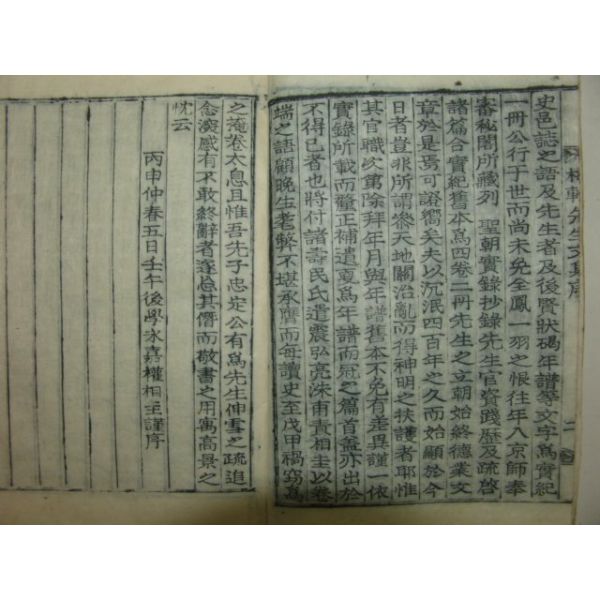 史邑誌之語及先生者及後賢狀碣年譜等文字爲實紀
一冊公行于世而尚未免全鳳一羽之恨往年入京師奉
審秘閣所藏列 聖朝實錄抄錄先生官資踐歷及疏啓
諸篇合實紀舊本爲四卷二冊先生之立朝始終德業文
章於是焉可謂嚮矣夫以沉泯四百年之久而始顯於今
日者豈非所謂參天地關治亂而得神明之扶護者耶惟
其官職次第除拜年月與年譜舊本不免有差異謹一依
實錄所載而釐正補遺更爲年譜而冠之篇首盖亦出於
不得已者也將付諸壽民氏遣震弘亮洙甫責相圭以卷
端之語顧晩生老弊不堪承膺而每讀史至戊甲禍窃爲
之淹卷太息且惟吾先子忠定公有爲先生伸雪之疏追
念瀀感有不敢終辭者遂忘其僭而敬書之用寓高景之
忱云
丙申仲春五日壬午後學永嘉權相圭謹序
軒先生文集序
二